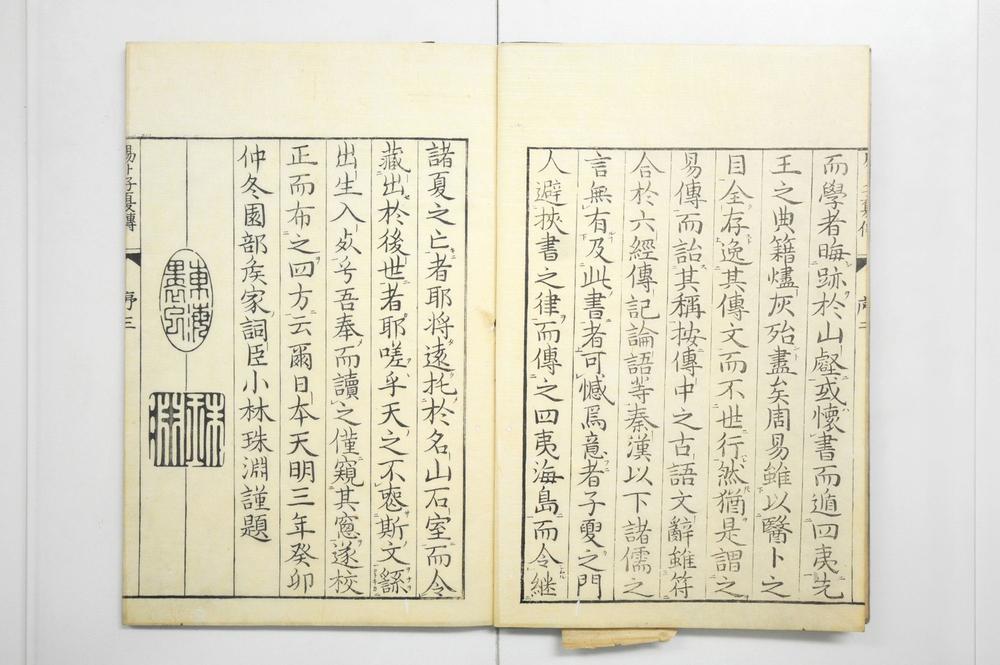 而學者晦跡於山壑或懷書而遁四夷先
王之典籍燼灰殆盡矣周易雖以醫卜之
目全存逸其傳文而不世行然猶是謂之
易傳而詒其稱按傳中之古語文辭雖符
合於六經傳記論語等秦漢以下諸儒之
言無有及此書者可憾焉意者子夏之門
人避挾書之律而傳之四夷海島而令継
序二
諸夏之亡者耶将遠托於名山石室而令
藏出於後世者耶嗟乎天之不喪斯文繇
出生入
吾奉而讀之僅窺其窓遂校
正而布之四方云爾日本天明三年癸卯
仲冬園部矦家詞臣小林珠淵謹題
東海
珠淵
易卜子夏傳
序三